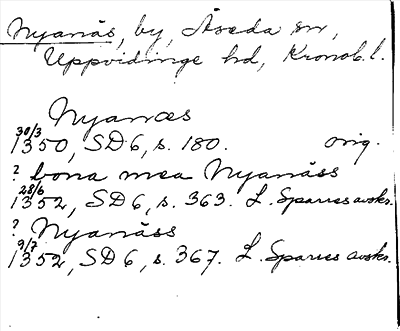 Nyanäs, by, Åseda sn,
Uppvidinge hd, Kronob. l.
Nyanæs
30/3
1350, SD 6, s. 180. orig.
? bona mea Nyanäss
28/6
1352, SD 6, s. 363. L. Sparres avskr.
? Nyanäss
9/7
1352, SD 6, s. 367. L. Sparres avskr.